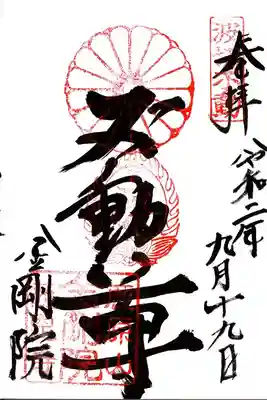 奉拝
令和二年九月十九日
不動尊
金剛院